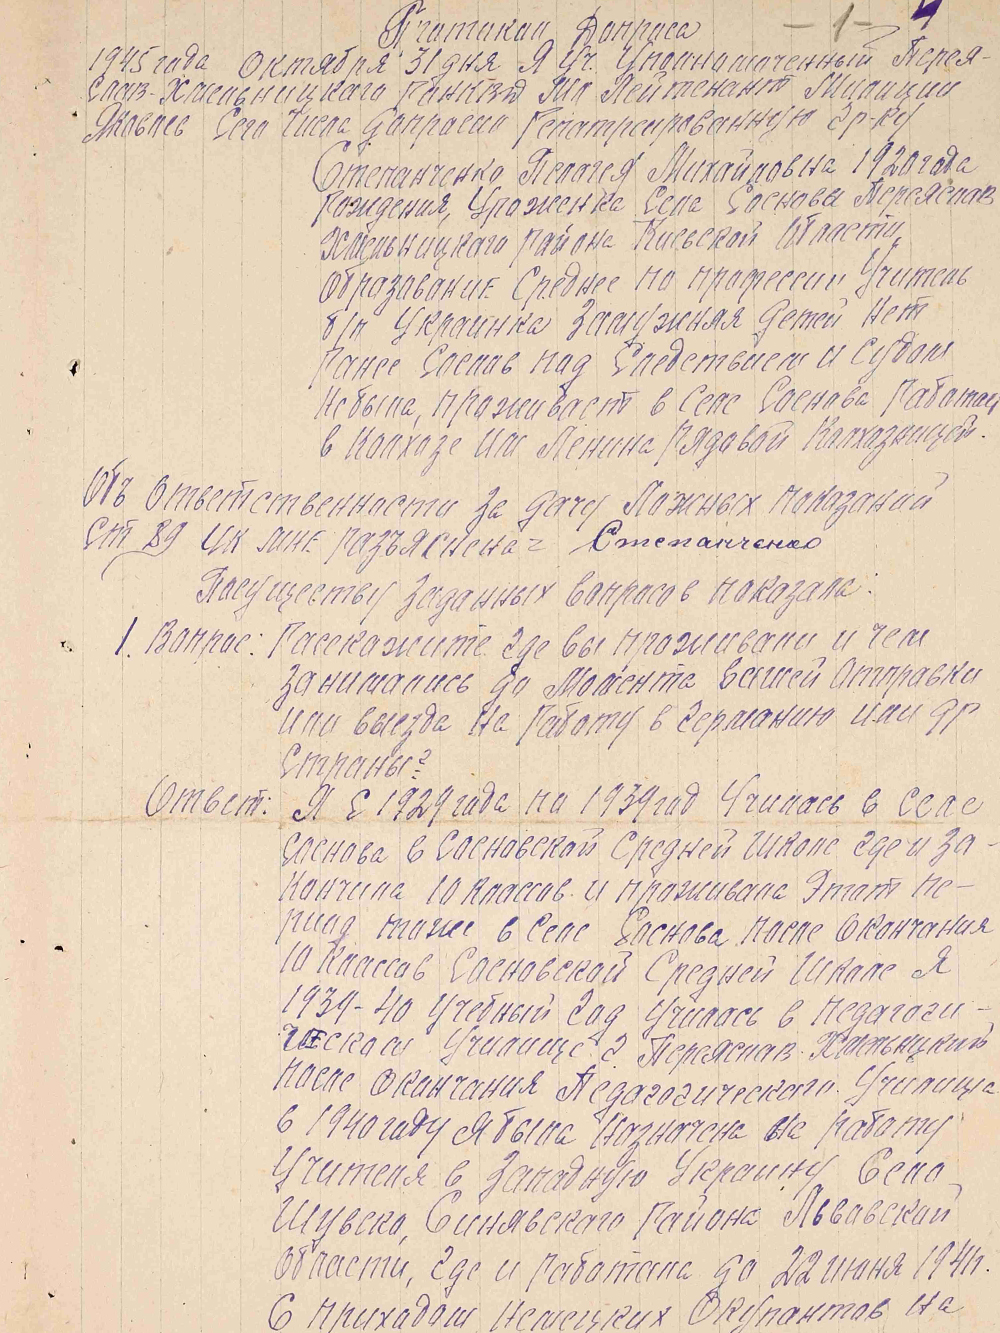 Протокол Допроса
-1-
4
1945 года октября 31 дня Я Уч. Уполномоченный Перея-
слав-Хмельницкого РОНКВД Мл Лейтенант Милиции
Яковлев Сего Числа допросил Репатреированную гр-ку
Степанченко Пелогея Михайловна 1920 года
рождения, Уроженка Села Соснова Переяслав
Хмельницкого района Киевской Области
Образование Среднее по профессии Учитель
б/п Украинка Замужняя детей нет
ранее Со слов под Следствием и судом
не была, проживает в Селе Соснова Работает
в Колхозе Им Ленина рядовой Колхозницей.
Объ ответственности за дачу Ложных показаний
Ст 89 УК мне разъяснена = Степанченко
По существу заданных вопросов показала:
1. Вопрос: Расскажите где вы проживали и чем
занимались до Момента вашей отправки
или выезда на Работу в Германию или др
Страны?
Ответ: Я с 1929 года по 1939 год Училась в Селе
Соснова в Сосновской Средней Школе где и за-
кончила 10 классов и проживала Этот пе-
риод тоже в Селе Соснова после окончания
10 Классов Сосновской Средней Школе Я
1939-40 Учебный Год Училась в Педагоги-
ческом Училище г Переяслав Хмельницкий
после окончания Педагогического Училища
в 1940 году Я была Назначена на работу
Учителя в Западную Украину Село
Синявского Района Львовской
области, где и работала до 22 июня 1941 г.
С приходом Немецких Окупантов на